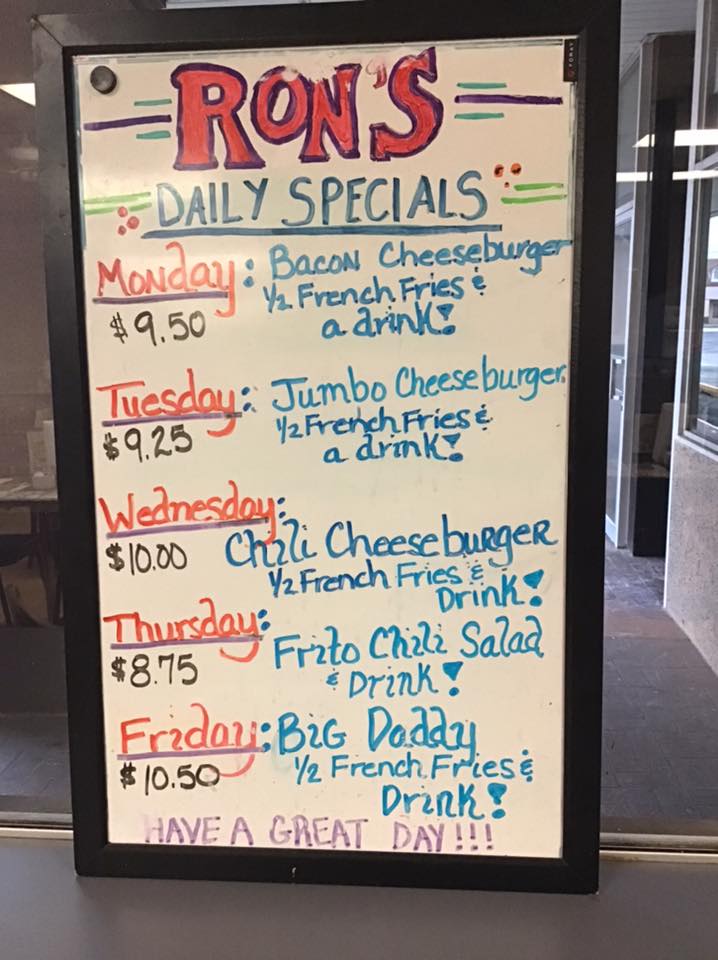 FORAY
RON'S
DAILY SPECIALS
Monday: Bacon Cheeseburger
$9.50 1/2 French Fries &
a drink!
Tuesday: Jumbo Cheeseburger
$9.25 1/2 French Fries &
a drink!
Wednesday:
$10.00 Chili Cheeseburger
1/2 French Fries &
Drink!
Thursday:
$8.75 Frito Chili Salad
& Drink!
Friday: Big Daddy
$10.50 1/2 French Fries &
Drink!
HAVE A GREAT DAY!!!